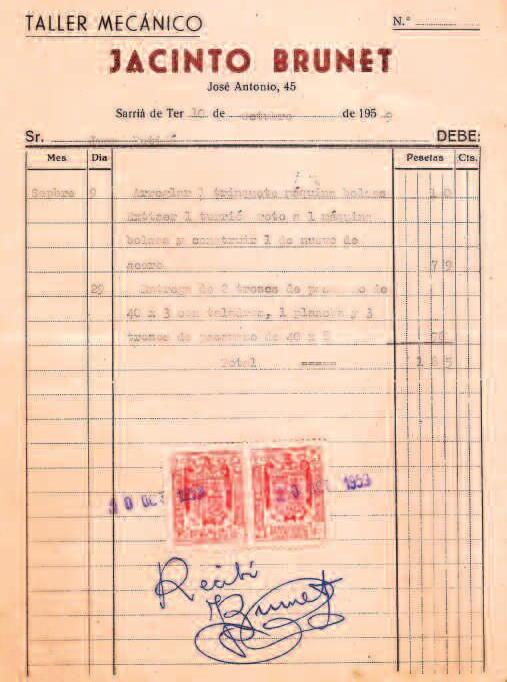 TALLER MECÁNICO
N.º
JACINTO BRUNET
José Antonio, 45
Sarriá de Ter 10 de octubre de 1959
Sr. DEBE:
Mes Dia Pesetas Cts.
Sepbre 9 Arreglar 1 trinquete máquina bolsas 10
1 roto a 1 máquina
bolsas y construir 1 de nuevo de
acero 79
29 Entrega de 2 trozos de de
40 x 3 con taladros, 1 plancha y 3
trozos de de 40 x
Total ===== 1 5
0 OCT 1959
OCT 1959
Recibí
Brunet